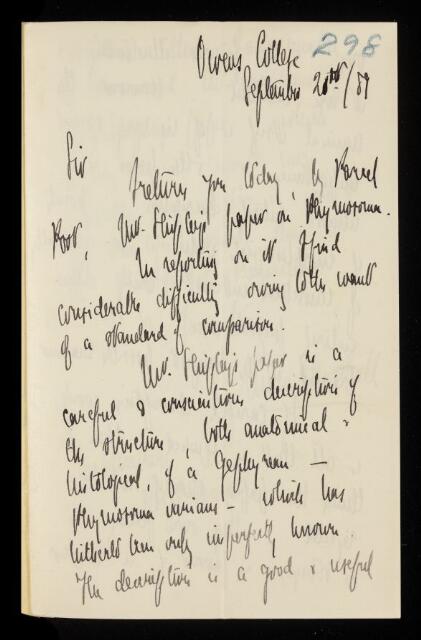 298
Owens College
September 20th/89
Sir
I return you today, by Parcel
Post, Mr. Shipley's paper on Phymosoma.
In reporting on it I find
considerable difficulty owing to the want
of a standard of comparison.
Mr Shipley's paper is a
careful & conscientious description of
the structure, both anatomical &
histological, of a Gephyrean —
Phymosoma varians — which has
hitherto been only imperfectly known.
The description is a good & useful